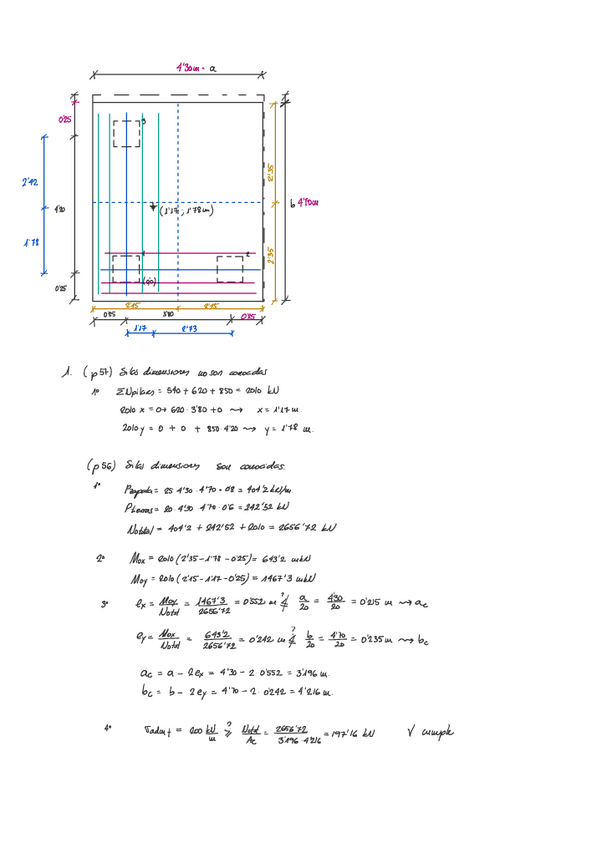 4'30m = a
0'25
3
2'42
2'35
(1'17, 1'78m)
b 4'70m
4'20
1'78
2'35
1
2
(0,0)
0'25
2'15
2'15
0'25
3'80
0'25
1'17
2'73
1. (p57) Si las dimensiones no son conocidas
1º ΣNpilares = 540 + 620 + 850 = 2010 kN
2010 x = 0 + 620 · 3'80 + 0 ⇝ x = 1'17 m.
2010 y = 0 + 0 + 850 · 4'20 ⇝ y = 1'78 m.
(p56) Si las dimensiones son conocidas.
1º Pzapata = 25 · 4'30 · 4'70 · 0'8 = 404'2 kN/m
Ptierras = 20 · 4'30 · 4'70 · 0'6 = 242'52 kN
Ntotal = 404'2 + 242'52 + 2010 = 2656'72 kN
2º Mox = 2010 (2'35 - 1'78 - 0'25) = 643'2 mkN
Moy = 2010 (2'15 - 1'17 - 0'25) = 1467'3 mkN
3º ex = Moy / Ntotal = 1467'3 / 2656'72 = 0'552 m ≮? a / 20 = 4'30 / 20 = 0'215 m ⇝ ac
ey = Mox / Ntotal = 643'2 / 2656'72 = 0'242 m ≮? b / 20 = 4'70 / 20 = 0'235 m ⇝ bc
ac = a - 2ex = 4'30 - 2 · 0'552 = 3'196 m.
bc = b - 2ey = 4'70 - 2 · 0'242 = 4'216 m.
4º σadm t = 200 kN / m ≥? Ntotal / Ac = 2656'72 / 3'196 · 4'216 = 197'16 kN √ cumple